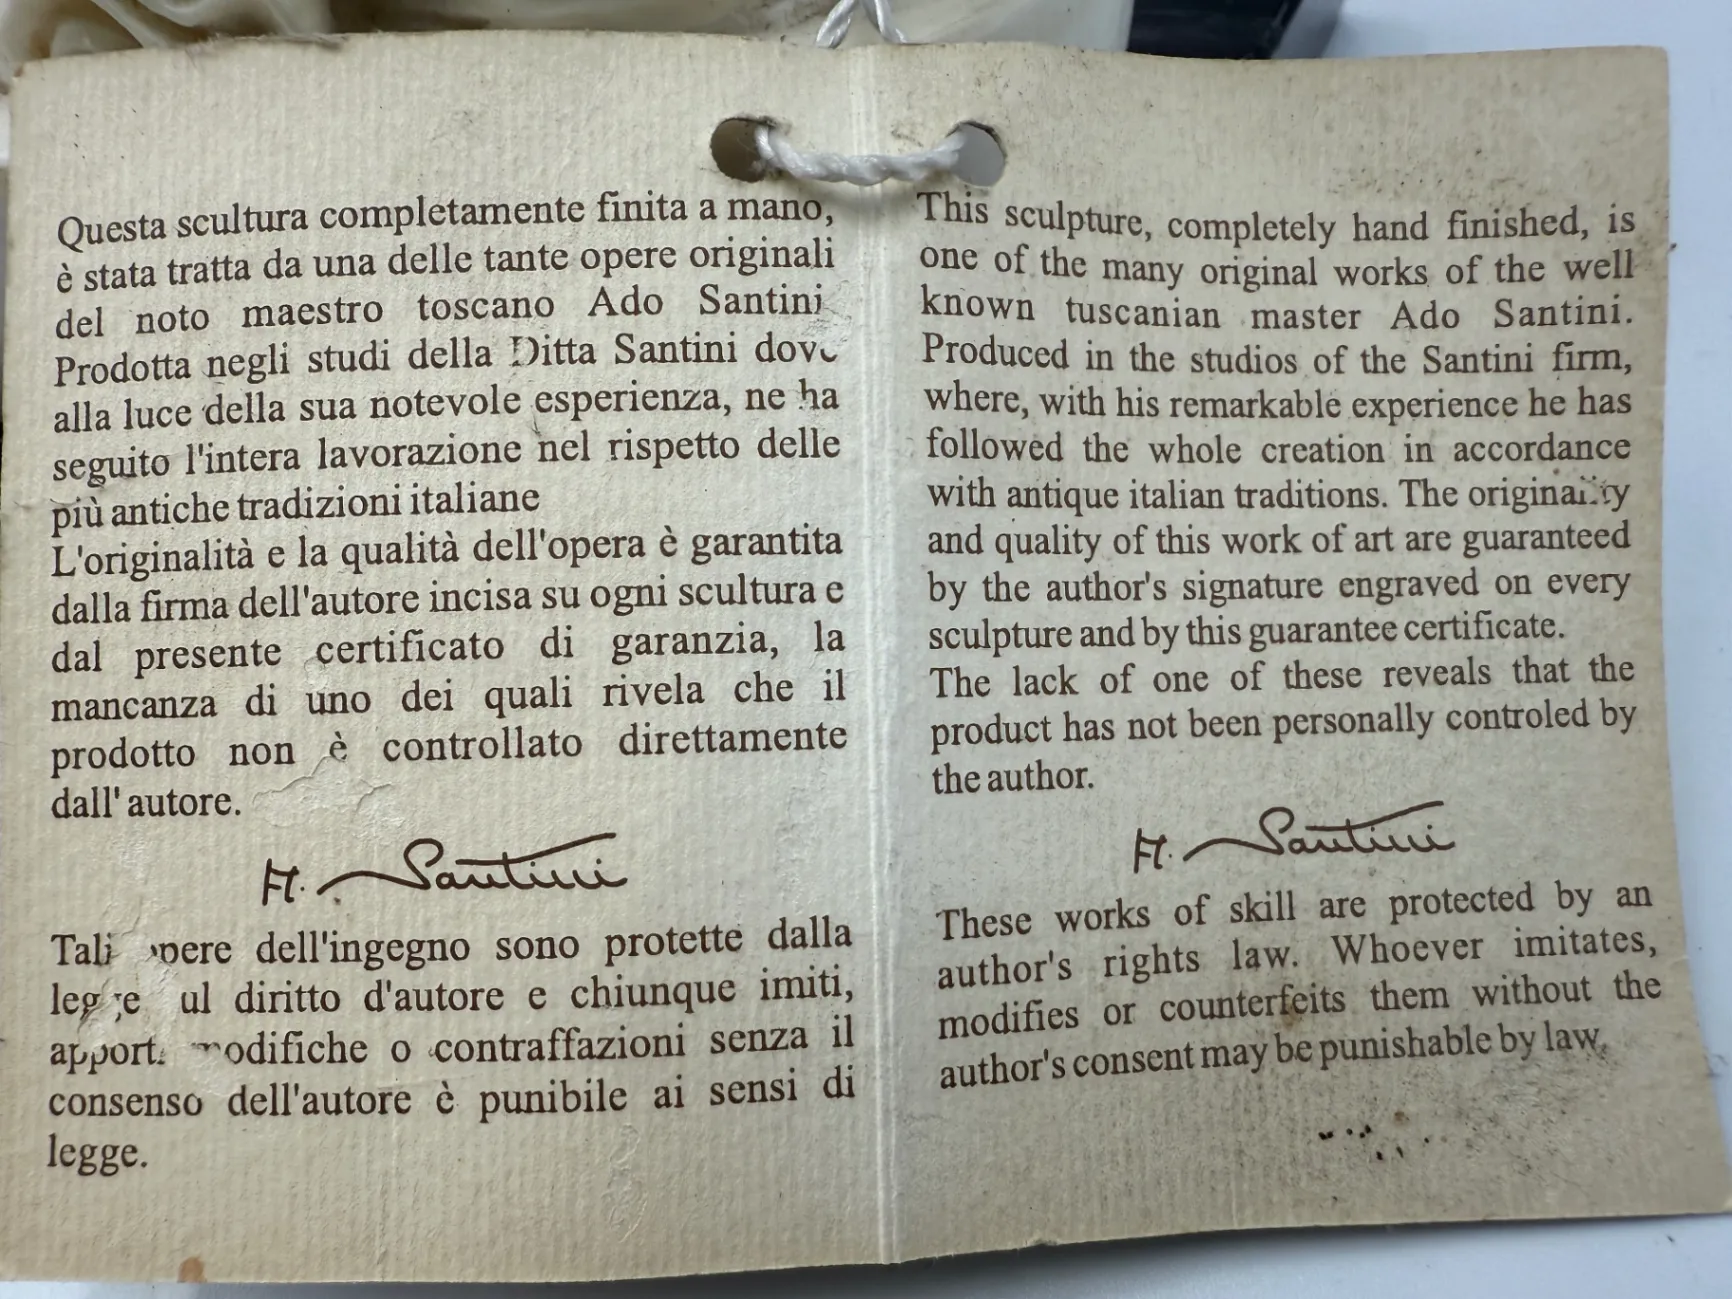 Questa scultura completamente finita a mano,
è stata tratta da una delle tante opere originali
del noto maestro toscano Ado Santini
Prodotta negli studi della Ditta Santini dove
alla luce della sua notevole esperienza, ne ha
seguito l'intera lavorazione nel rispetto delle
più antiche tradizioni italiane
L'originalità e la qualità dell'opera è garantita
dalla firma dell'autore incisa su ogni scultura e
dal presente certificato di garanzia, la
mancanza di uno dei quali rivela che il
prodotto non è controllato direttamente
dall' autore.
A. Santini
Tali opere dell'ingegno sono protette dalla
legge sul diritto d'autore e chiunque imiti,
apporti modifiche o contraffazioni senza il
consenso dell'autore è punibile ai sensi di
legge.
This sculpture, completely hand finished, is
one of the many original works of the well
known tuscanian master Ado Santini.
Produced in the studios of the Santini firm,
where, with his remarkable experience he has
followed the whole creation in accordance
with antique italian traditions. The originality
and quality of this work of art are guaranteed
by the author's signature engraved on every
sculpture and by this guarantee certificate.
The lack of one of these reveals that the
product has not been personally controled by
the author.
A. Santini
These works of skill are protected by an
author's rights law. Whoever imitates,
modifies or counterfeits them without the
author's consent may be punishable by law.